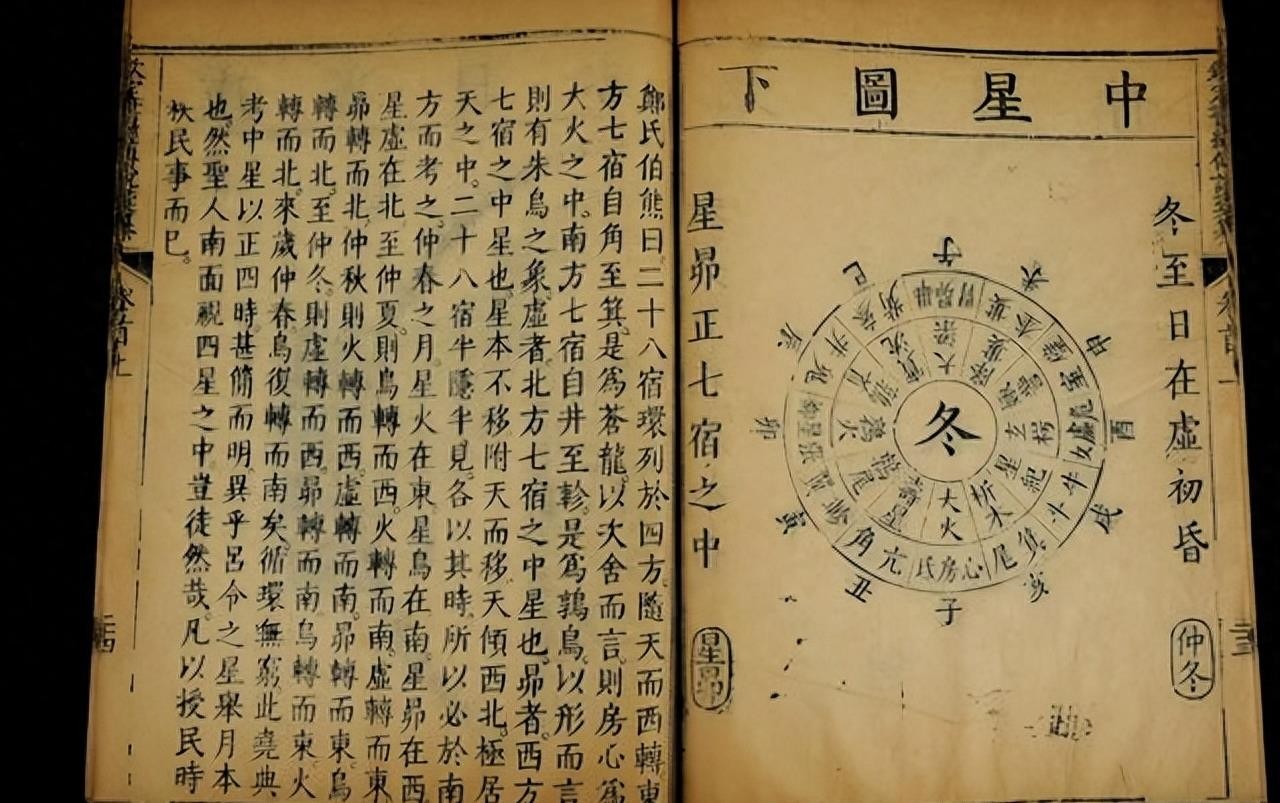 中星圖下
冬至日在虛初昏
仲冬
冬
大火
析木
星紀
玄枵
大梁
鶉火
鶉尾
壽星
氐房心
尾箕
斗牛
女虛危
井鬼
角亢
子
亥
戌
酉
申
辰
卯
寅
丑
星昴正七宿之中
星昴
二三
鄭氏伯熊曰。二十八宿環列於四方。隨天而西轉。東
方七宿自角至箕。是為蒼龍。以次舍而言。則房心為
大火之中。南方七宿自井至軫。是為鶉鳥。以形而言。
則有朱鳥之象。虛者。北方七宿之中星也。昴者。西方
七宿之中星也。星本不移。附天而移。天傾西北。極居
天之中。二十八宿半隱半見。各以其時。所以必於南
方而考之。仲春之月。星火在東。星鳥在南。星昴在西。
星虛在北。至仲夏。則鳥轉而西。火轉而南。虛轉而東。
昴轉而北。仲秋則火轉而西。虛轉而南。昴轉而東。鳥
轉而北。至仲冬。則虛轉而西。昴轉而南。鳥轉而東。火
轉而北。來歲仲春。鳥復轉而南矣。循環無窮。此堯典
考中星以正四時。甚簡而明。異乎呂令之星舉月本
也。然聖人南面視四星之中。豈徒然哉。凡以授民時
秩民事而已。
二四